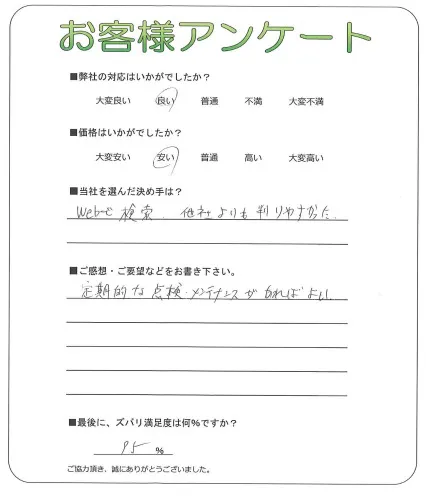 お客様アンケート
■弊社の対応はいかがでしたか？
大変良い 良い 普通 不満 大変不満
■価格はいかがでしたか？
大変安い 安い 普通 高い 大変高い
■当社を選んだ決め手は？
Webで検索、他社よりも判りやすかった。
■ご感想・ご要望などをお書き下さい。
定期的な点検・メンテナンスがあればよい。
■最後に、ズバリ満足度は何%ですか？
95 %
ご協力頂き、誠にありがとうございました。